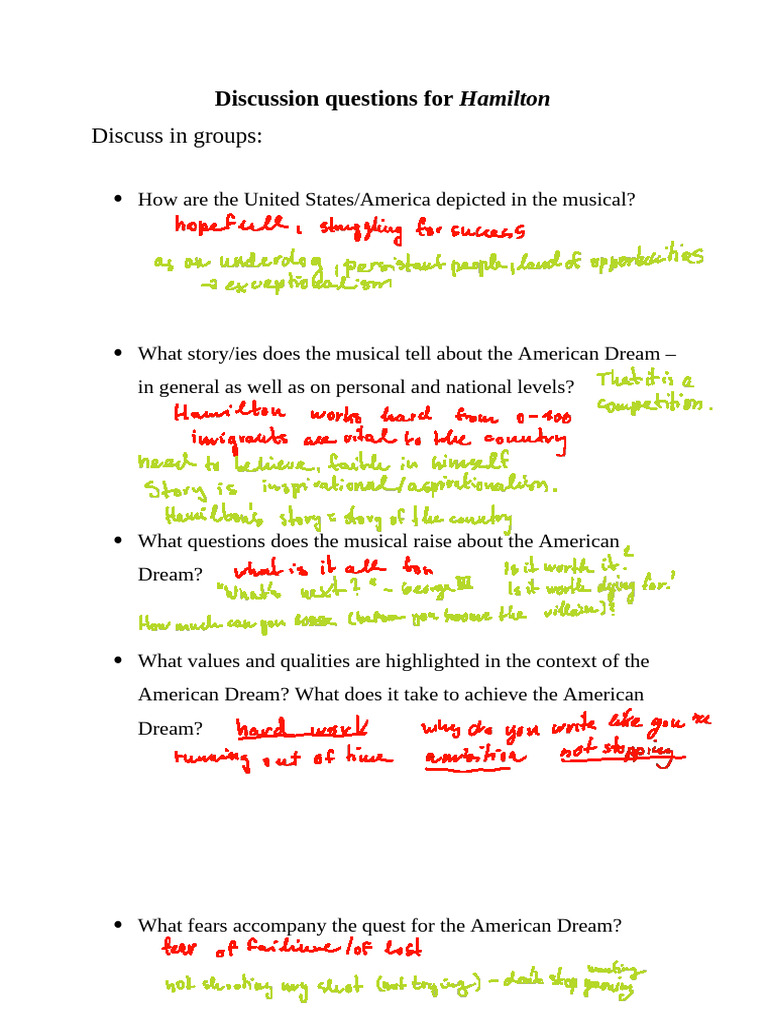 Discussion questions for Hamilton
Discuss in groups:
• How are the United States/America depicted in the musical?
hopefull, struggling for success
as an underdog, persistent people, land of opportunities
→ exceptionalism
• What story/ies does the musical tell about the American Dream –
in general as well as on personal and national levels?
That it is a
competition.
Hamilton works hard from 0-100
imigrants are vital to the country
need to believe, faible in himself
Story is inspirational/aspirationalism.
Hamilton's story = story of the country
• What questions does the musical raise about the American
Dream?
what is it all for
Is it worth it?
"What's next?" - George III
Is it worth dying for?
How much can you (before you become the villain)?
• What values and qualities are highlighted in the context of the
American Dream? What does it take to achieve the American
Dream?
hard work
why do you write like you're
running out of time
ambition
not stopping
• What fears accompany the quest for the American Dream?
fear of failiure/of lost
not shooting my shot (not trying) - don't stop